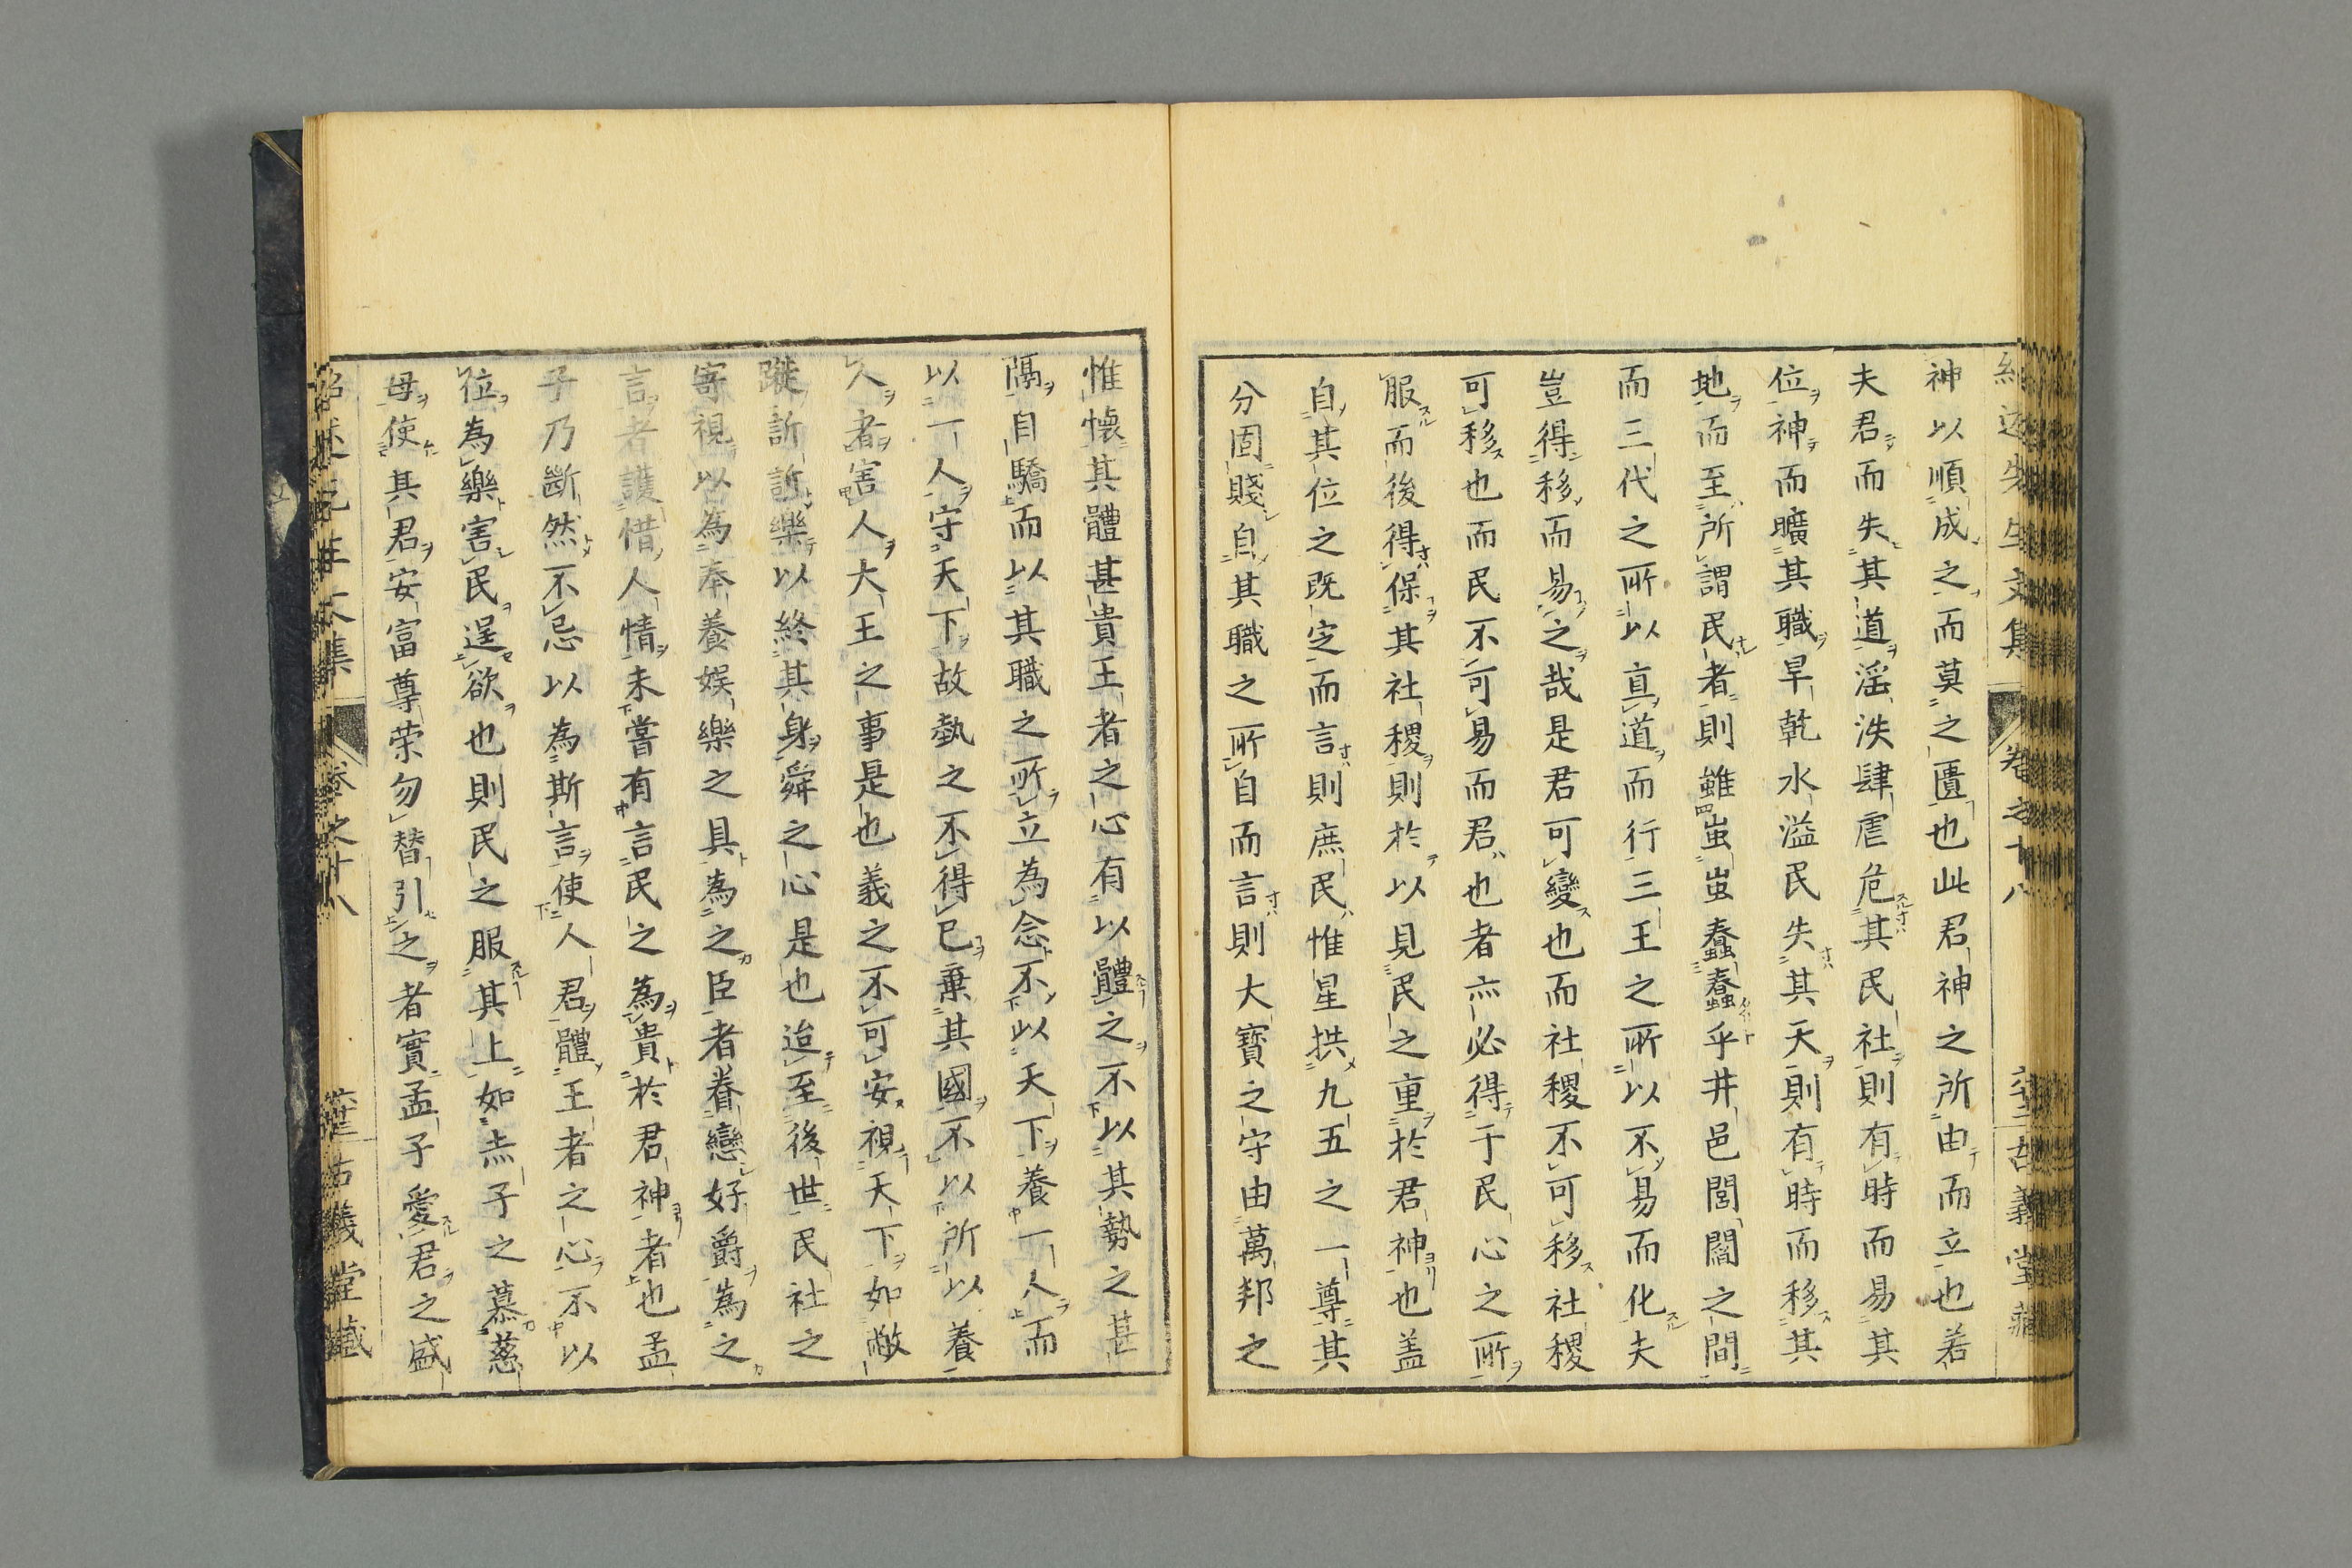 神以順成之而莫之匱也此君神之所由而立也若
夫君而失其道滛泆肆虐危其民社則有時而易其
位神而曠其職旱乾水溢民失其天則有時而移其
地而至所謂民者則雖蚩蚩蠢蠢乎井邑閭閻之間
而三代之所以直道而行三王之所以不易而化夫
豈得移而易之哉是君可變也而社稷不可移社稷
可移也而民不可易而君也者亦必得于民心之所
服而後得保其社稷則於以見民之重於君神也盖
自其位之既定而言則庶民惟星拱九五之一尊其
分固賤自其職之所自而言則大寶之守由萬邦之
惟懐其體甚貴王者之心有以體之不以其勢之甚
隔自驕而以其職之所立為念不以天下養一人而
以一人守天下故執之不得已棄其國不以所以養
人者害人大王之事是也義之不可安視天下如敝
蹝訢訢樂以終其身舜之心是也迨至後世民社之
寄視以為奉養娯樂之具為之臣者眷戀好爵為之
言者護惜人情未嘗有言民之為貴於君神者也孟
子乃斷然不忌以為斯言使人君體王者之心不以
位為樂害民逞欲也則民之服其上如赤子之慕慈
母使其君安富尊荣勿替引之者實孟子愛君之盛
紹述先生文集 卷之十八 古義堂藏